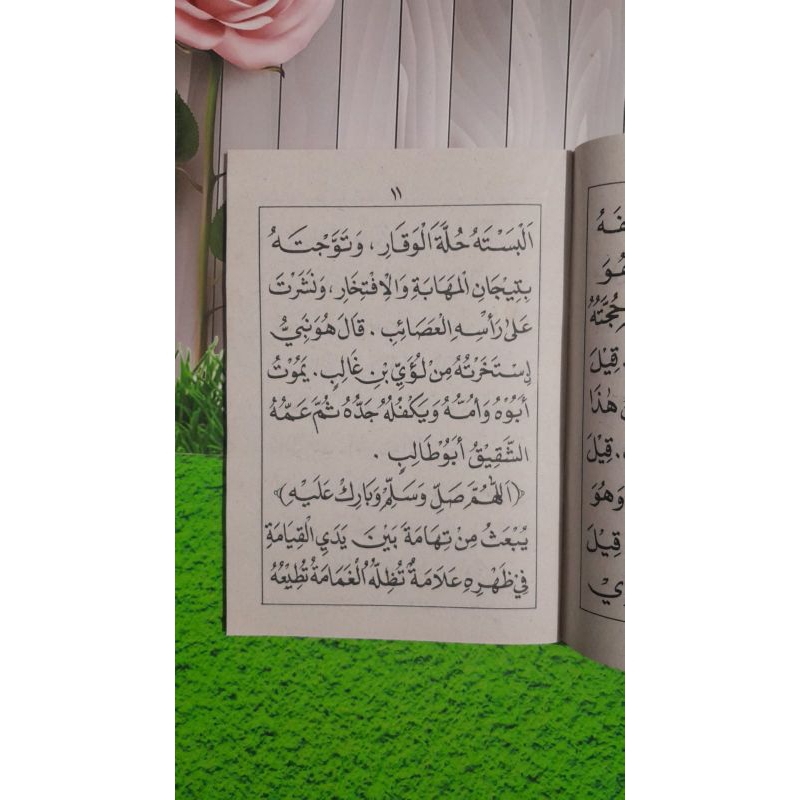 ١١
اَلْبَسْتَهُ حُلَّةَ الْوَقَارِ ، وَتَوَّجْتَهُ
بِتِيْجَانِ الْمَهَابَةِ وَالْاِفْتِخَارِ ، وَنَشَرْتَ
عَلٰى رَأْسِهِ الْعَصَائِبِ . قَالَ هُوَ نَبِيٌّ
اِسْتَخَرْتُهُ مِنْ لُؤَيِّ بْنِ غَالِبٍ . يَمُوْتُ
أَبُوْهُ وَاُمُّهُ وَيَكْفُلُهُ جَدُّهُ ثُمَّ عَمُّهُ
الشَّقِيْقُ أَبُوْطَالِبٍ .
﴿اَللّٰهُمَّ صَلِّ وَسَلِّمْ وَبَارِكْ عَلَيْهِ﴾
يُبْعَثُ مِنْ تِهَامَةَ بَيْنَ يَدَيِ الْقِيَامَةِ
فِيْ ظَهْرِهِ عَلَامَةٌ تُظِلُّهُ الْغَمَامَةُ تُطِيْعُهُ
حُجَّتُهُ
قِيْلَ
هٰذَا
. قِيْلَ
وَهُوَ
قِيْلَ